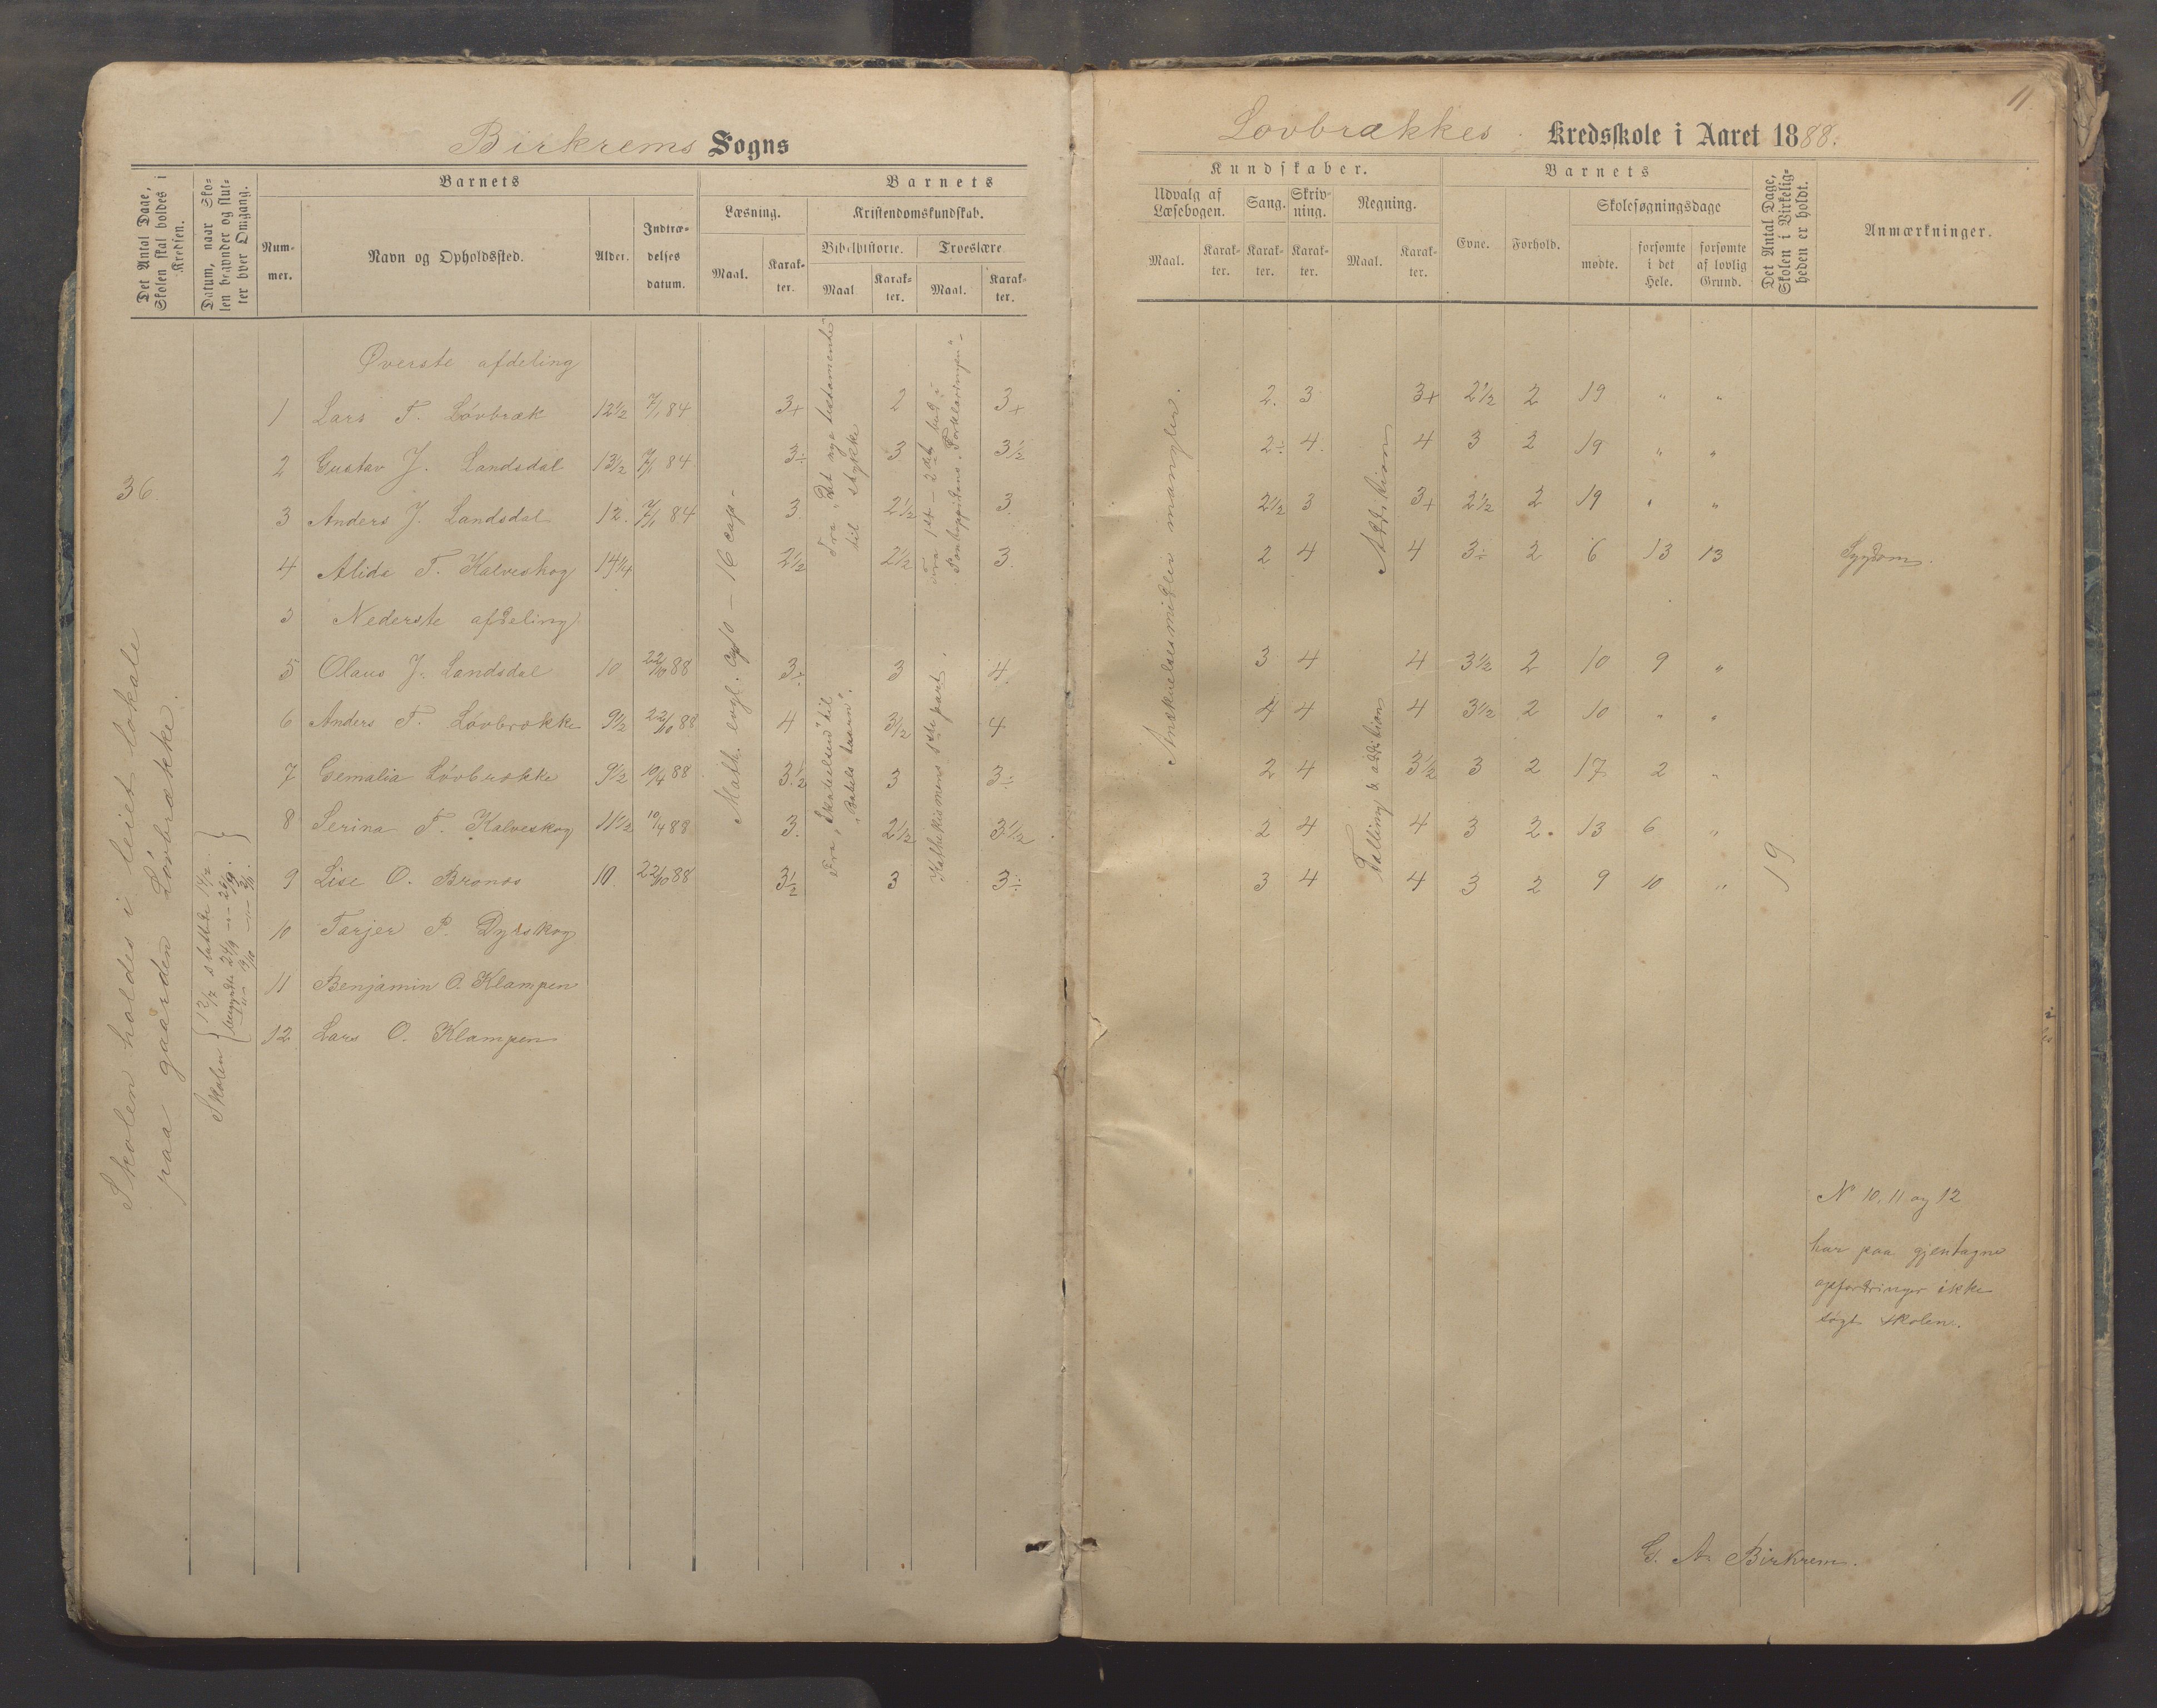 Birkrems Sogns
Det Antal Dage, Skolen skal holdes i Kredsen.
Datum, naar Skolen begynder og slutter hver Omgang.
Barnets
Nummer.
Navn og Opholdssted.
Alder.
Indtrædelses datum.
Barnets
Læsning.
Maal.
Karakter.
Kristendomskundskab.
Bibelhistorie.
Maal
Karakter.
Troeslære
Maal.
Karakter.
36.
Skolen holdes i leiet lokale
paa gaarden Lövbrække.
Skolen
12/7 sluttede 14/7.
begyndte 24/9 — 29/9.
Øverste afdeling
1 Lars T. Lövbræk 12 1/2 7/1 84 3+ 2 3+
2 Gustav J. Landsdal 13 1/2 7/1 84 3÷ 3 3 1/2
3 Anders J. Landsdal 12. 7/1 84 3 2 1/2 3.
4 Alida T. Kalveskog 14 1/4 2 1/2 2 1/2 3.
Nederste afdeling
5 Olaus J. Landsdal 10 22/10 88 3÷ 3 4.
6 Anders T. Lövbrække 9 1/2 22/10 88 4 3 1/2 4
7 Gemalia Lövbrække 9 1/2 10/4 88 3 1/2 3 3÷
8 Serina T. Kalveskog 11 1/2 10/4 88 3. 2 1/2 3 1/2
9 Lise O. Bronos 10 22/10 88 3 1/2 3 3÷
10 Tarjer P. Dyrskog
11 Benjamin O. Klampen
12 Lars O. Klampen
Math. evgl. cap 10 – 16 cap.
Fra „Det nye testamente"
til stykke
Fra 1ste – 2det bud i
Pontoppidans „Forklaringen".
Fra „Skabelsen" til
„Babels taarn".
Kathekismens 1ste part.
11.
Lovbrækkes Kredsskole i Aaret 1888.
Kundskaber.
Udvalg af Læsebogen.
Maal.
Karakter.
Sang.
Karakter.
Skrivning.
Karakter.
Regning.
Maal.
Karakter.
Barnets
Evne.
Forhold.
Skolesøgningsdage
mødte.
forsømte i det Hele.
forsømte af lovlig Grund.
Det Antal Dage, Skolen i Virkeligheden er holdt.
Anmærkninger.
Anskuelsesmidler mangler.
Addition
Tælling & addition
2. 3 3+ 2 1/2 2 19 " "
2÷ 4. 4 3 2 19 " "
2 1/2 3 3+ 2 1/2 2 19 " "
2 4 4 3÷ 2 6 13 13 Sygdom.
3 4 4 3 1/2 2 10 9 "
4 4 4 3 1/2 2 10 " "
2 4 3 1/2 3 2 17 2 "
2 4 4 3 2. 13 6 "
3 4 4 3 2 9 10 "
19
No 10, 11 og 12
har paa gjentagne
opfordringer ikke
søgt skolen.
G. A. Birkrem.